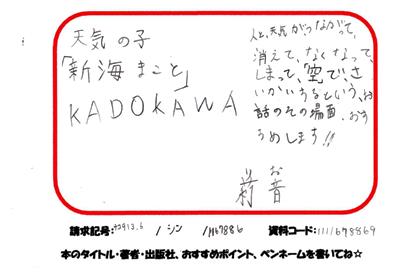 天気の子
「新海まこと」
KADOKAWA
人と、天気がつながって、
消えて、なくなって、
しまって、「空で、さ
いかいするという、お
話のその場面、おす
すめします!!
お
音
請求記号: 913.6 / シン /
資料コード: 1111678869
本のタイトル・著者・出版社、おすすめポイント、ペンネームを書いてね☆